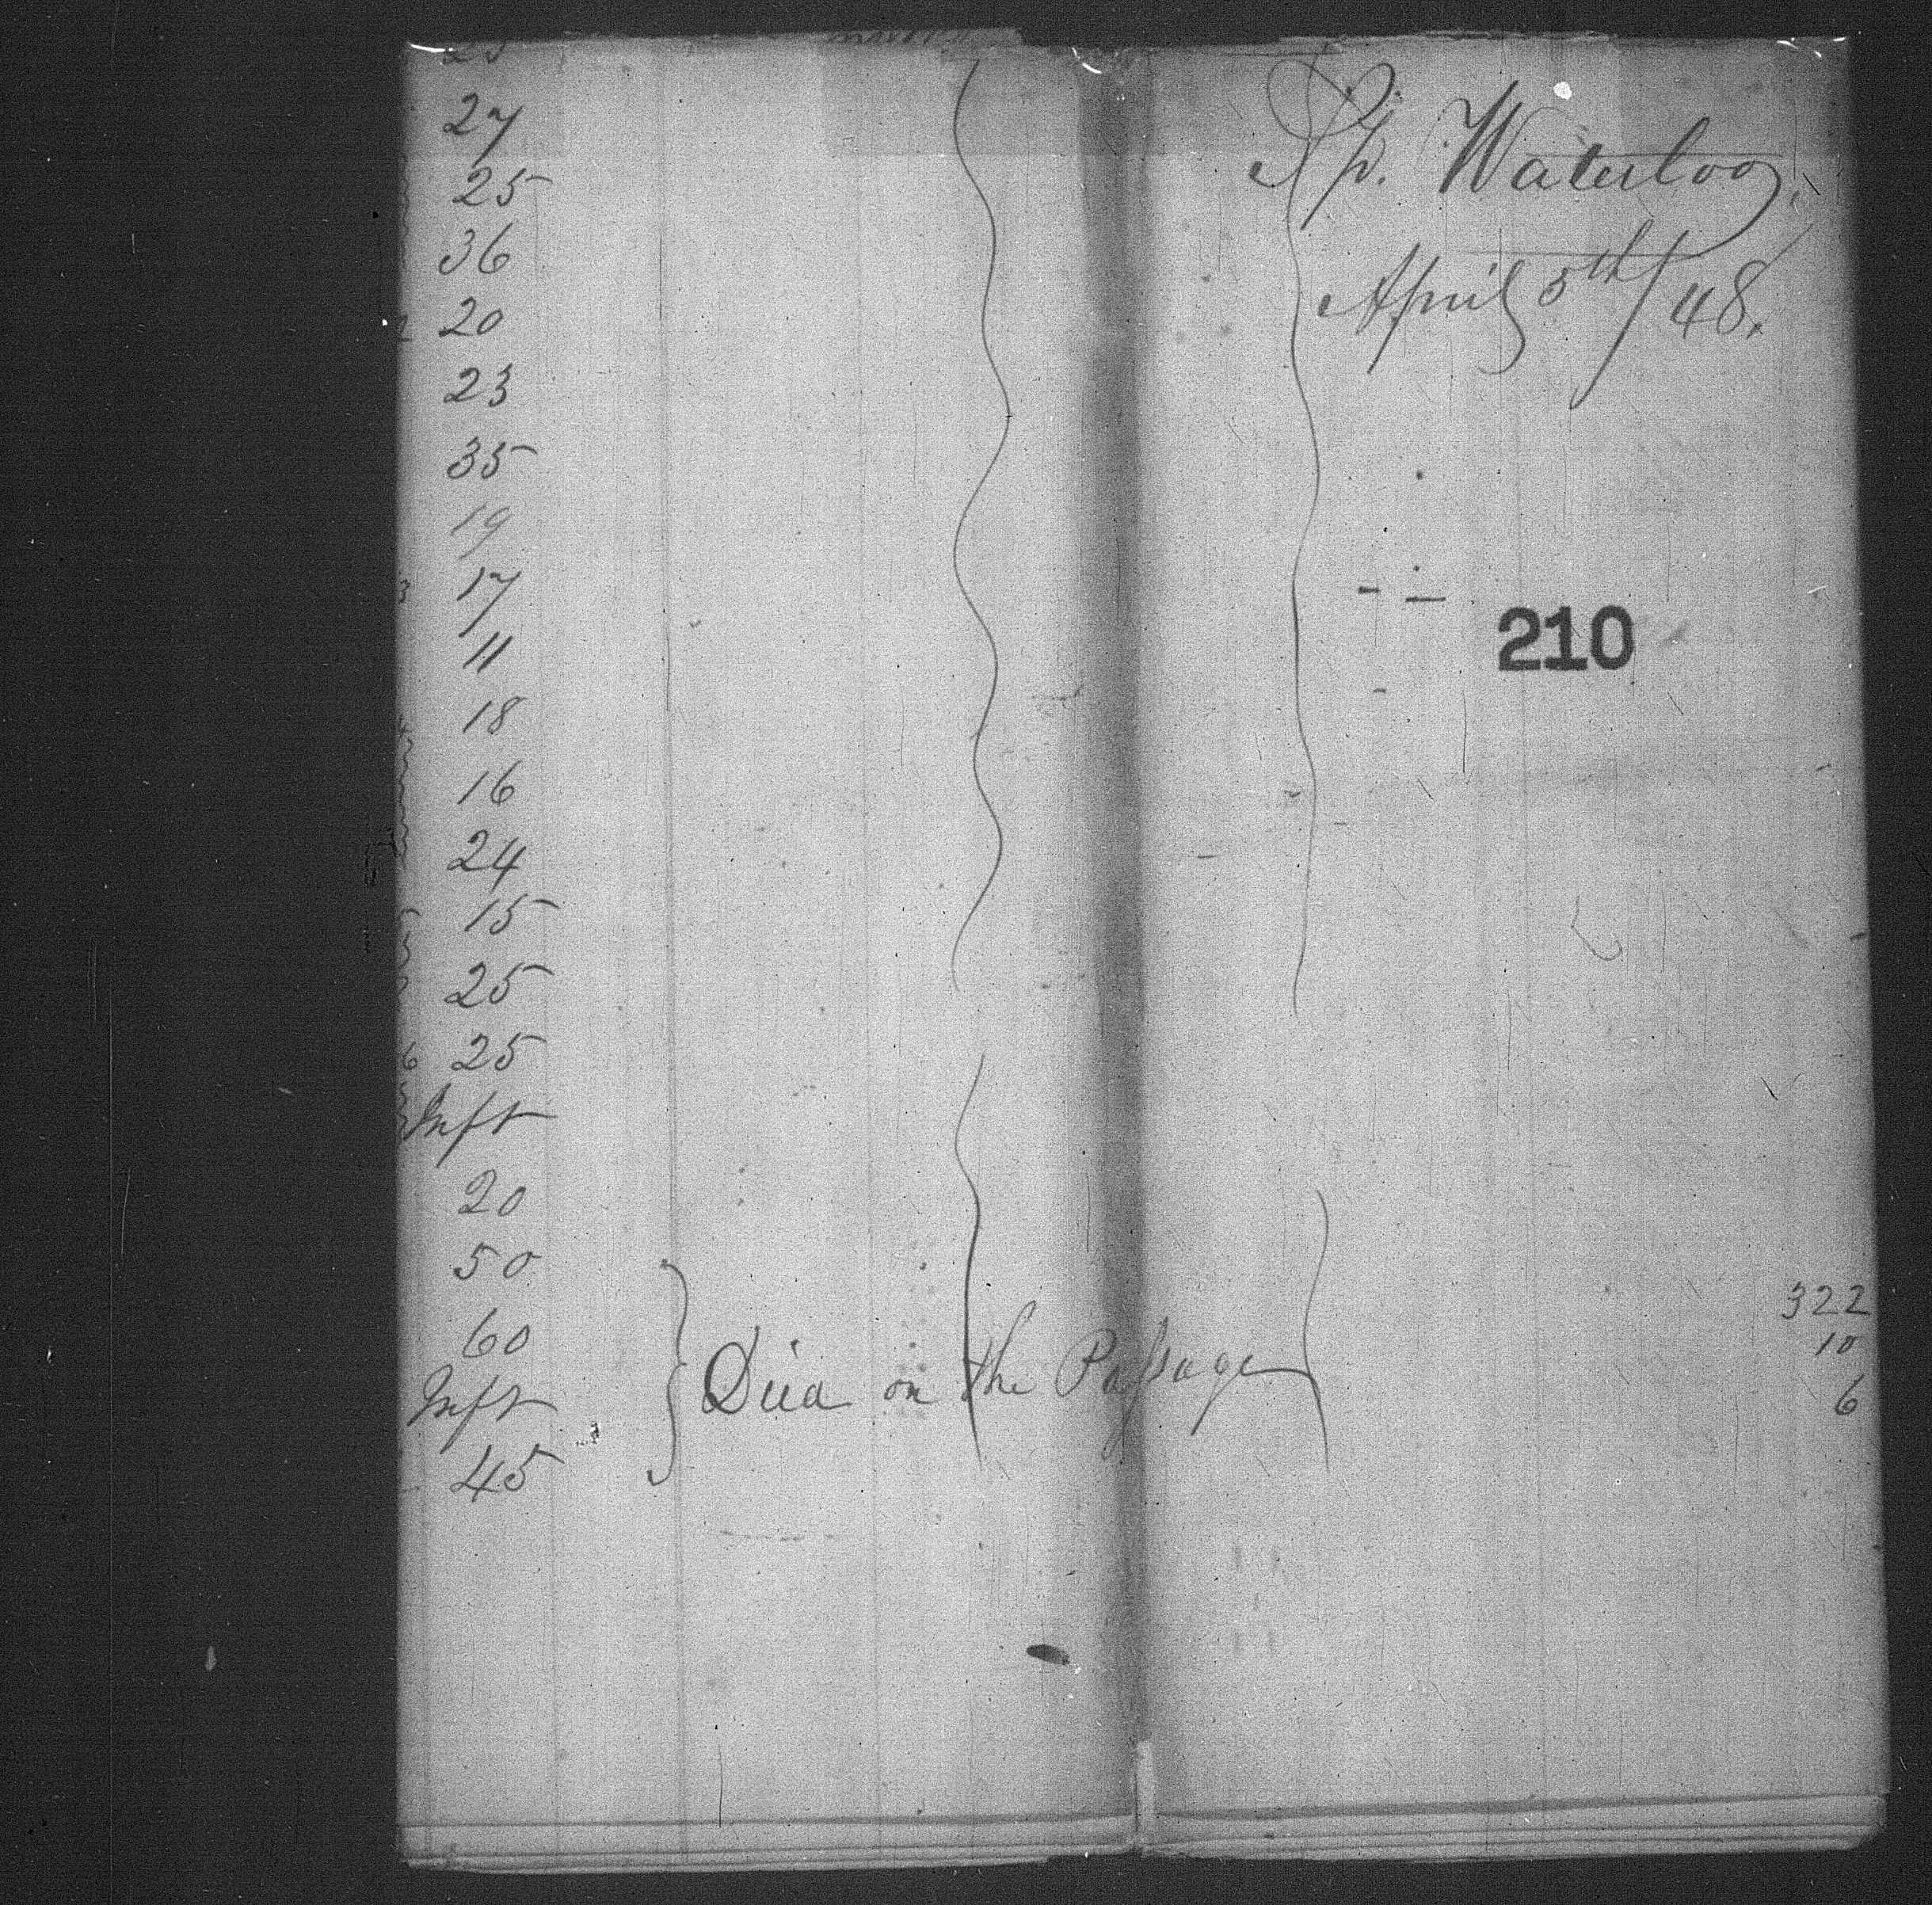 27
25
36
20
23
35
19
17
11
18
16
24
15
25
25
Inft
20
50
60
Inft
45
Died on the Passage
Sp. Waterloo.
April 5th/48.
210
322
10
6